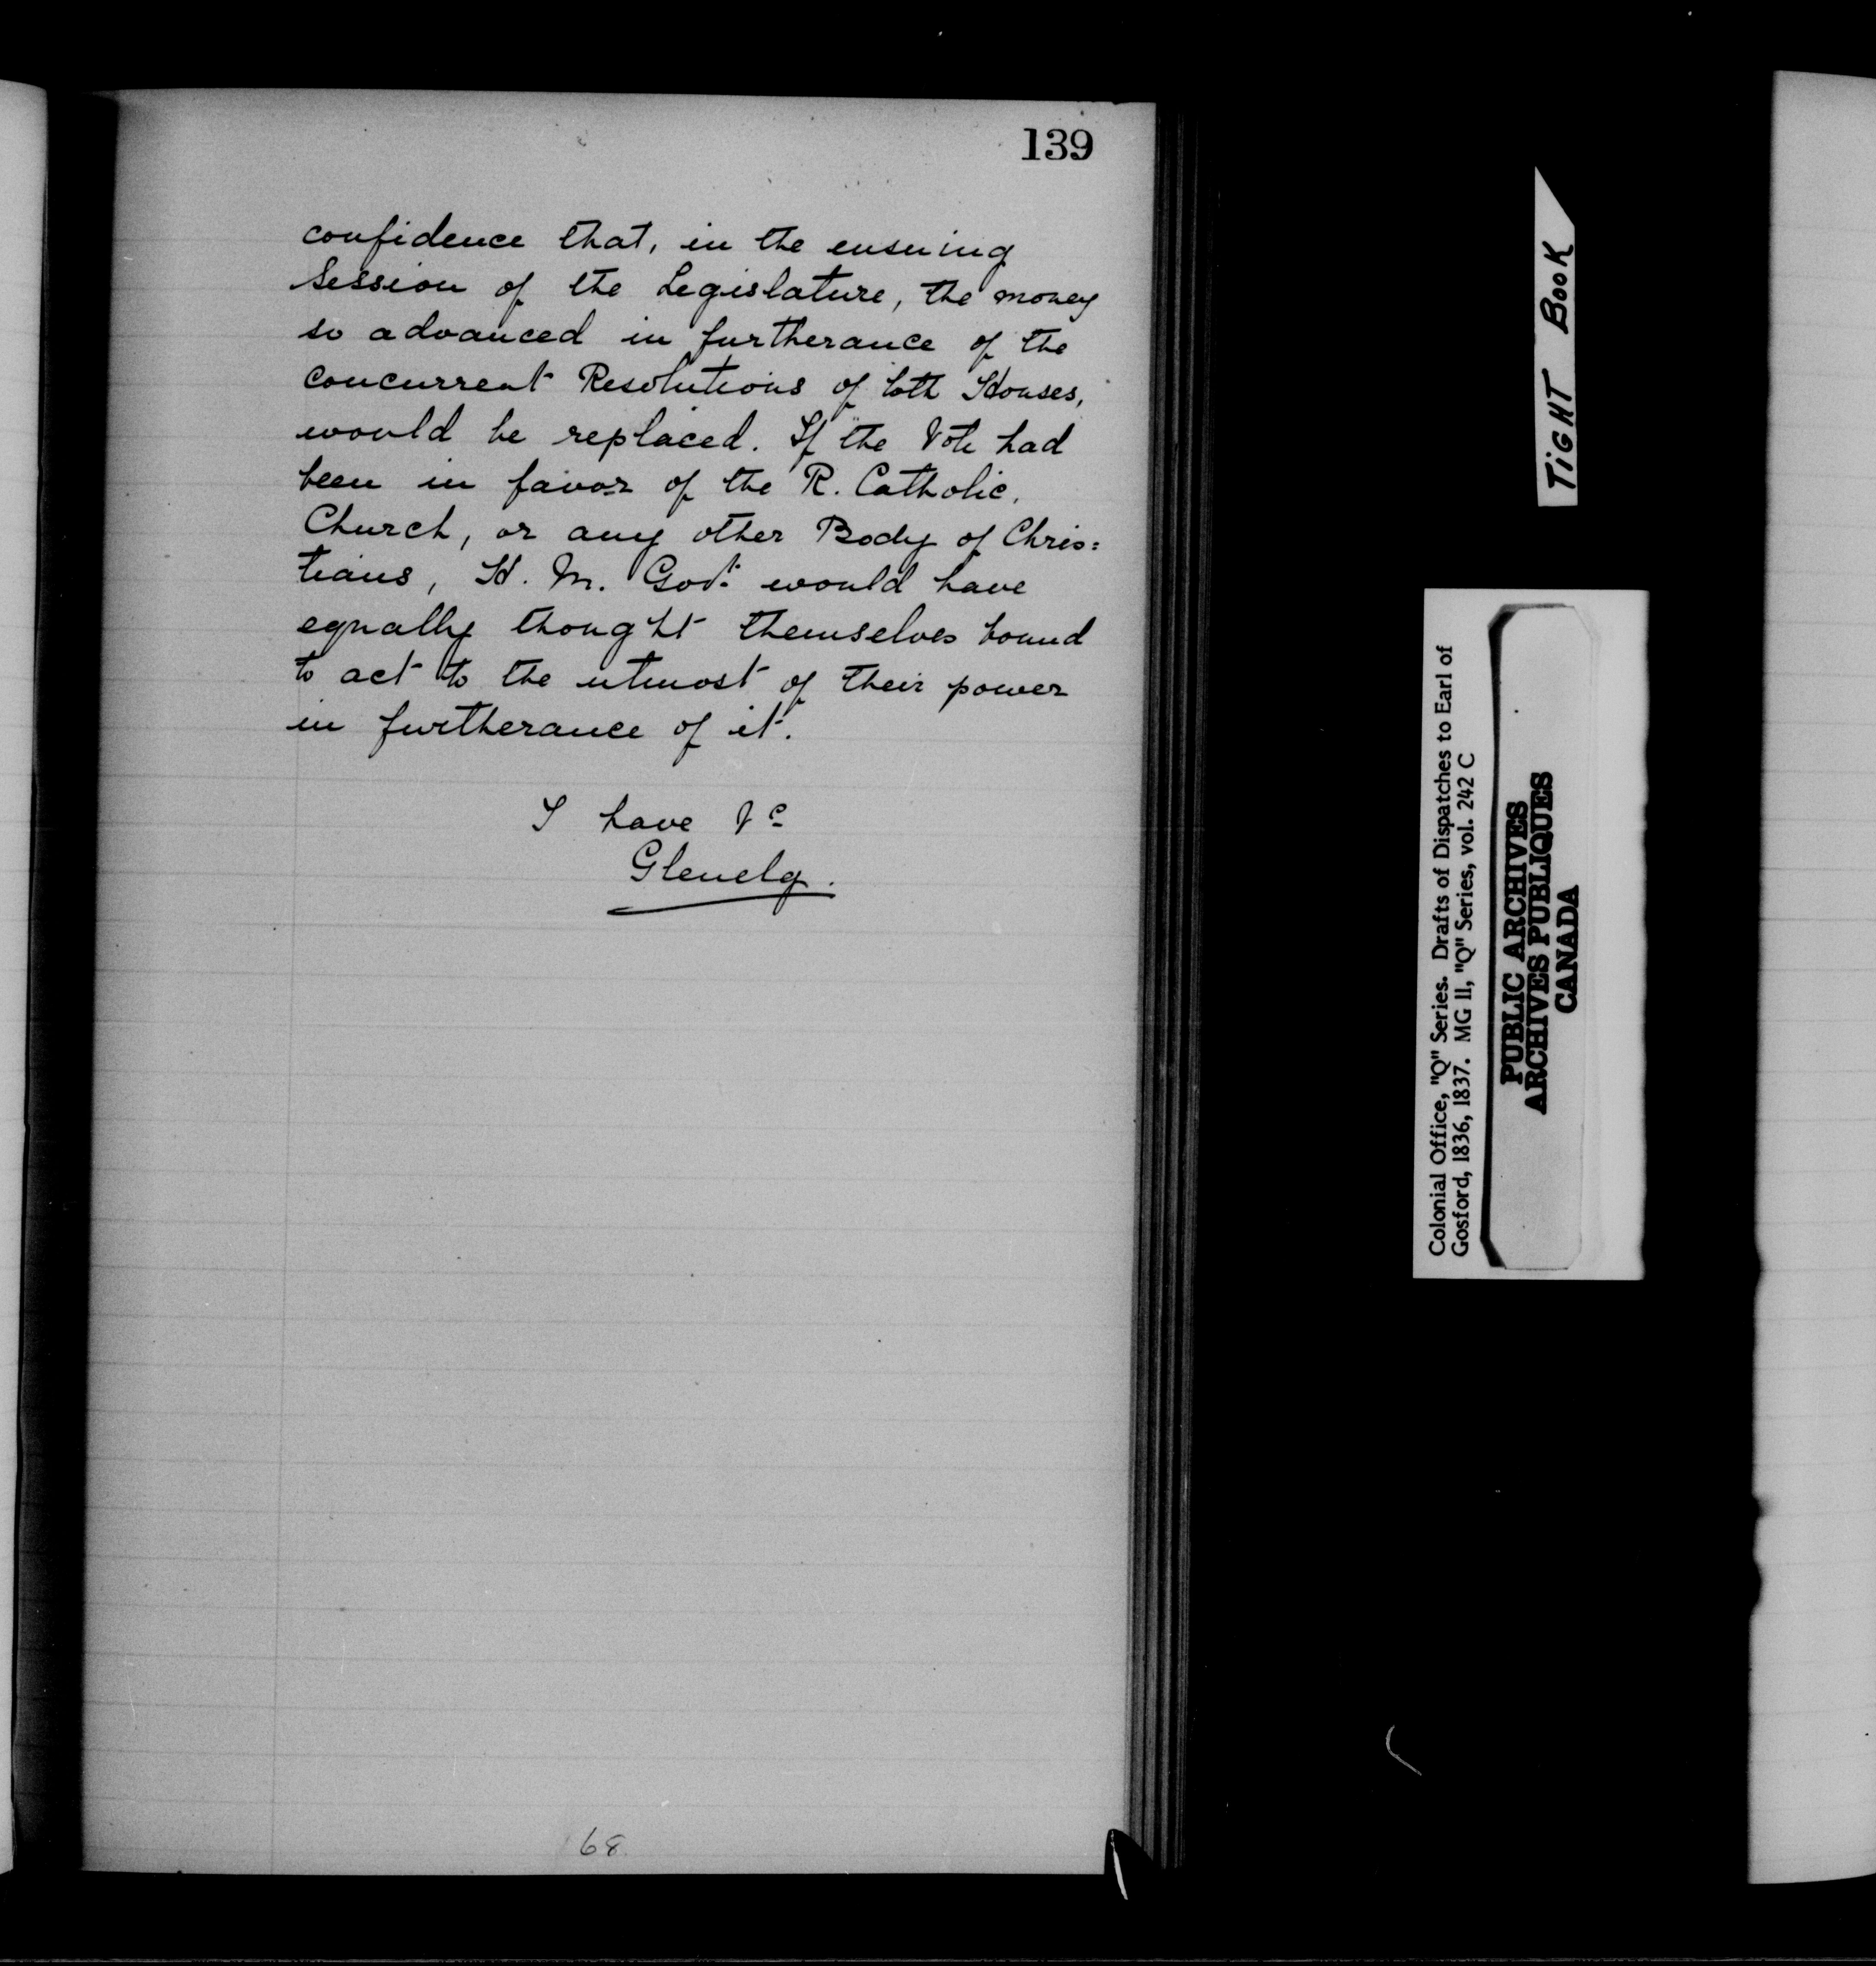 139
confidence that, in the ensuing
Session of the Legislature, the money
so advanced in furtherance of the
concurrent Resolutions of both Houses,
would be replaced. If the Vote had
been in favor of the R. Catholic.
Church, or any other Body of Chris=
tians, H. M. Govt. would have
equally thought themselves bound
to act to the utmost of their power
in furtherance of it.
I have &c
Glenelg.
68
TIGHT BOOK
Colonial Office, "Q" Series. Drafts of Dispatches to Earl of
Gosford, 1836, 1837. MG 11, "Q" Series, vol. 242 C
PUBLIC ARCHIVES
ARCHIVES PUBLIQUES
CANADA